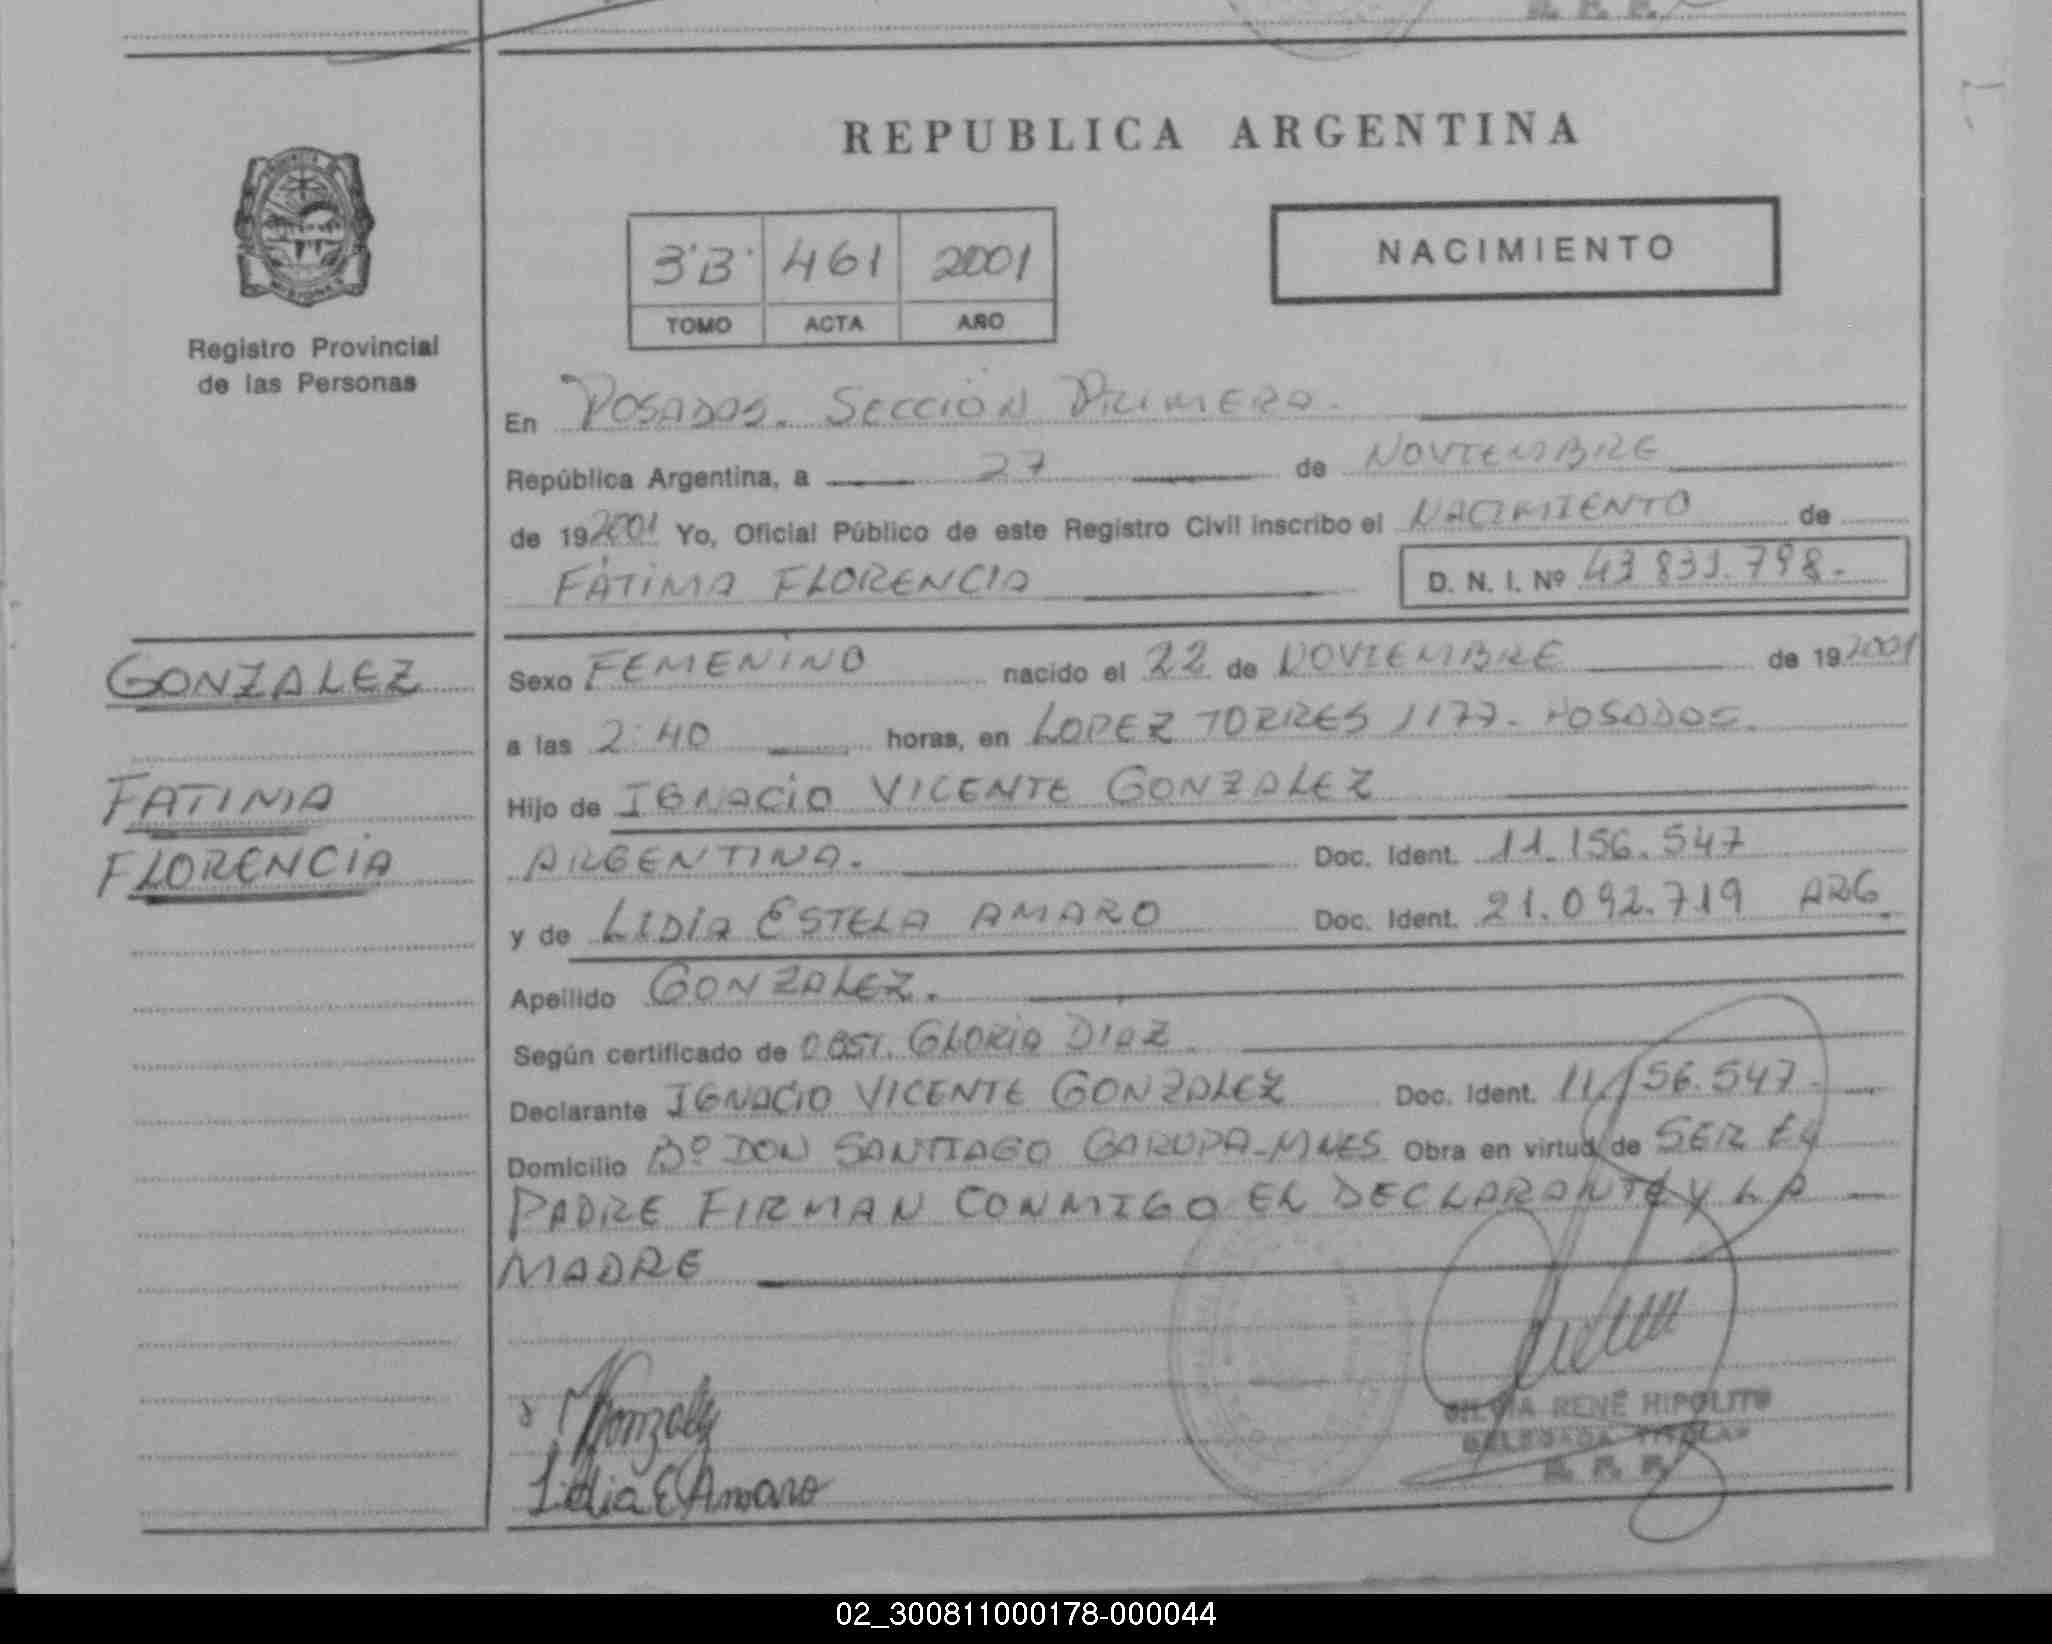 REPUBLICA ARGENTINA
3'B' 461 2001
TOMO ACTA AÑO
NACIMIENTO
Registro Provincial
de las Personas
En POSADAS. SECCIÓN PRIMERA.
República Argentina, a 27 de NOVIEMBRE
de 19 2001 Yo, Oficial Público de este Registro Civil inscribo el NACIMIENTO de
FÁTIMA FLORENCIA D. N. I. Nº 43 831.798.-
GONZALEZ
FATIMA
FLORENCIA
Sexo FEMENINO nacido el 22 de NOVIEMBRE de 19 2001
a las 2:40 horas, en LOPEZ TORRES 1177. POSADAS.
Hijo de IGNACIO VICENTE GONZALEZ
ARGENTINA. Doc. Ident. 11.156.547
y de LIDIA ESTELA AMARO Doc. Ident. 21.092.719 ARG.
Apellido GONZALEZ.
Según certificado de OBST. GLORIA DIAZ
Declarante IGNACIO VICENTE GONZALEZ Doc. Ident. 11.156.547.
Domicilio Bº DON SANTIAGO GARUPA-MNES Obra en virtud de SER EL
PADRE FIRMAN CONMIGO EL DECLARANTE Y LA
MADRE
Gonzalez
Lidia E Amaro
SILVIA RENÉ HIPOLITO
DELEGADA TITULAR
R. P. P.
02_300811000178-000044